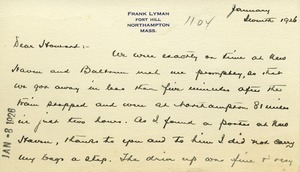 FRANK LYMAN
FORT HILL
NORTHAMPTON
MASS.
1104
January
1926
Dear Howard:-
We were exactly on time at New
Haven and met me promptly so that
we got away in less than five minutes after the
train stopped and were at Northampton 81 miles
in just two hours. As I found a porter at New
Haven, thanks to you and to him I did not carry
my bags a step. The drive up was fine & very
JAN -8 1926